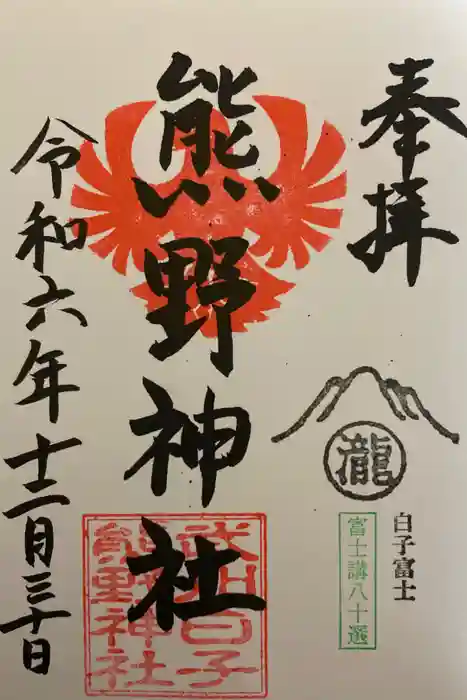 奉拝
瀧
白子富士
富士講八十選
熊野神社
武州白子
熊野神社
令和六年十二月三十日